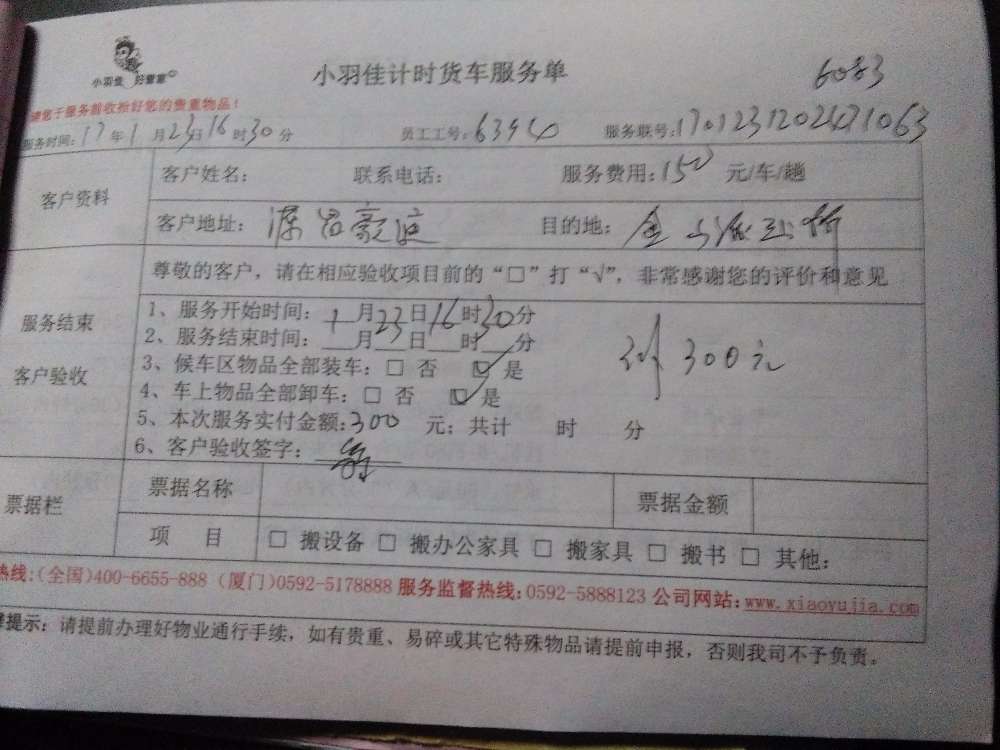 小羽佳 好管家
小羽佳计时货车服务单
请您于服务前收拾好您的贵重物品！
服务时间：17年1月23日16时30分 员工工号：6394 服务联号：
客户资料
客户姓名： 联系电话： 服务费用：150 元/车/趟
客户地址：源昌豪庭 目的地：金山
尊敬的客户，请在相应验收项目前的“□”打“√”，非常感谢您的评价和意见
服务结束
客户验收
1、服务开始时间：1月23日16时30分
2、服务结束时间：___月___日___时___分
3、候车区物品全部装车：□ 否 ☑ 是
4、车上物品全部卸车：□ 否 ☑ 是
5、本次服务实付金额：300 元；共计 时 分
6、客户验收签字：
300元
票据栏
票据名称 票据金额
项 目 □ 搬设备 □ 搬办公家具 □ 搬家具 □ 搬书 □ 其他：
热线：(全国)400-6655-888 (厦门)0592-5178888 服务监督热线：0592-5888123 公司网站：www.xiaoyujia.com
提示：请提前办理好物业通行手续，如有贵重、易碎或其它特殊物品请提前申报，否则我司不予负责。